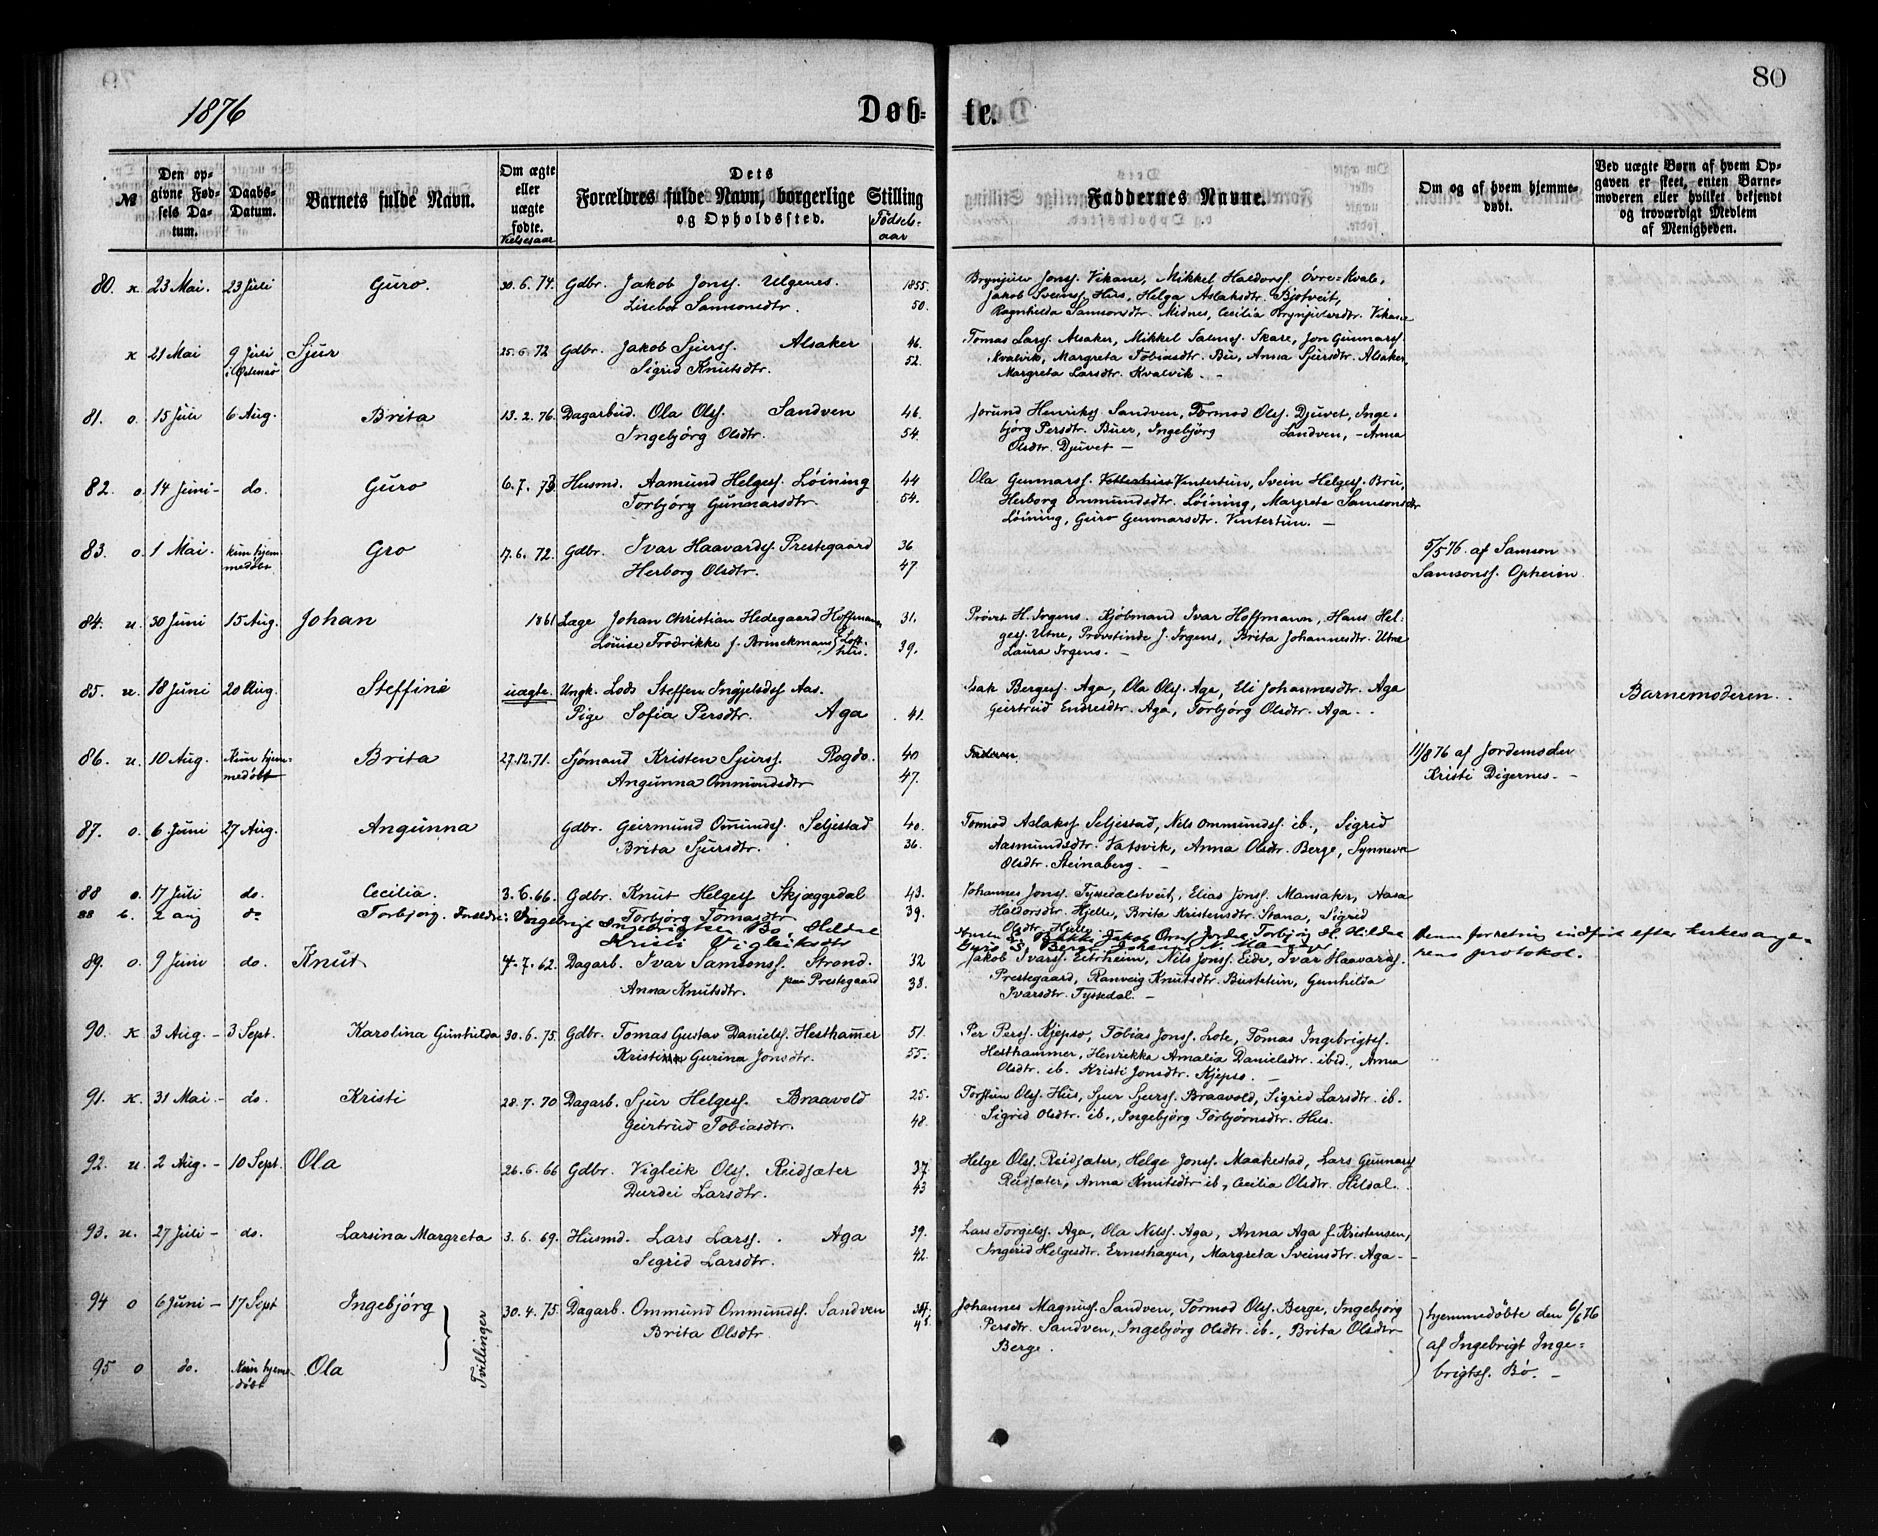 80
1876
Døb-te.
№
Den opgivne Fødsels Datum.
Daabs-Datum.
Barnets fulde Navn.
Om ægte eller uægte fødte.
Vielsesaar
Dets Forældres fulde Navn, borgerlige Stilling og Opholdssted.
Fødselsaar
Faddernes Navne.
Om og af hvem hjemmedøbt.
Ved uægte Børn af hvem Opgaven er skeet, enten Barnemoderen eller hvilket bekjendt og troværdigt Medlem af Menigheden.
80. k 23 Mai. 23 Juli Guro. 30.6.74. Gdbr. Jakob Jonss. Ulgenes. 1855. Brynjulv Jonss. Vikane, Mikkel Haldorss. Övre-Kvale,
Lisebet Samsonsdtr. 50. Jakob Sveinss. Hus, Helga Aslaksdtr. Bjotveit,
Ragnhelda Samsonsdtr. Midnes, Cecilia Brynjulvsdtr. Vikane
k 21 Mai 9 Juli Sjur 25.6.72 Gdbr. Jakob Sjurss. Alsaker 46. Tomas Larss. Alsaker, Mikkel Skare, Jon Gunnarss.
i Østensø Sigrid Knutsdtr. 52. Kvalvik, Margreta Tobiasdtr. Bu, Anna Sjursdtr. Alsaker,
Margreta Larsdtr. Kvalvik. -
81. o. 15 Juli 6 Aug. Brita 13.2.76. Dagarbeid. Ola Olss. Sandven 46. Jorund Henrikss. Sandven, Tormod Olss. Djuvet, Inge-
Ingebjörg Olsdtr. 54. björg Persdtr. Buer, Ingebjörg Sandven, - Anna
Olsdtr. Djuvet -
82. o. 14 Juni- do. Guro 6.7.73 Husmd. Aamund Helgess. Löining 44 Ola Gunnarss. Vintertun, Svein Helgess. Bru,
Torbjörg Gunnarsdtr. 54. Herborg Ommundsdtr. Löining, Margrete Samsonsdtr
Löining, Guro Gunnarsdtr. Vintertun. -
83. o. 1 Mai. kun hjem Gro 17.6.72. Gdbr. Ivar Haavardss. Prestegaard 36 5/5 76. af Samson
medöbt Herborg Olsdtr. 47. Samsonss. Opheim
84. u. 30 Juni 15 Aug. Johan 1861 Læge Johan Christian Hedegaard Hoffmann 31. Provst H. Irgens. Kjöbmand Ivar Hoffmann, Hans Hel-
Louise Fredrikke f. Brinckmann Lofthus. 39. gess. Utne, Provstinde J. Irgens, Brita Johannesdtr. Utne
Laura Irgens. -
85. u. 18 Juni 20 Aug. Steffine uægte. Ungk. Lods Steffen Ingjelds Aas. Isak Bergess. Aga, Ola Olss. Aga, Eli Johannesdtr. Aga Barnemoderen.
Pige Sofia Persdtr. Aga 41. Geirtrud Endresdtr. Aga, Torbjörg Olsdtr. Aga.
86. u. 10 Aug. Kun hjem- Brita 27.12.71. Sjømand Kristen Sjurss. Rogdo. 40 Faderen. 11/8 76 af Jordemoder
medöbt Angunna Ommundsdtr 47. Kristi Digernes. -
87. o. 6 Juni 27 Aug. Angunna Gdbr. Geirmund Omundss. Seljestad 40. Tormod Aslakss. Seljestad, Nils Ommundss. ib., Sigrid
Brita Sjursdtr. 36. Aasmundsdtr. Vatsvik, Anna Olsdtr. Berge, Synneva
Olsdtr. Steinaberg. -
88 o. 17 Juli do. Cecilia. 3.6.66. Gdbr. Knut Helgess Skjæggedal 43. Johannes Jonss. Tyssedalstveit, Elias Jonss. Mansaker, Aasa
Torbjörg Tomasdtr 39. Haldorsdtr. Hjelle, Brita Kristensdtr. Stana, Sigrid
Olsdtr. Hjelle.
88 b. 2 aug do Torbjörg. Ingebrigt Ingebrigtsen Bø, Hildre Jakob Jordre Torbjörg H. Hildre Denne forretning indført efter kirkesange-
Kristi Vigleiksdtr Guro S. Berge Johans N. rens protokol.
89. o 9 Juni do. Knut 4.7.62. Dagarb. Ivar Samsonss. Strond. 32 Jakob Ivarss. Eitrheim, Nils Jonss. Eide, Ivar Haavardss.
Anna Knutsdtr. paa Prestegaard 38. Prestegaard, Ranveig Knutsdtr. Bustetun, Gunhilda
Ivarsdtr. Tyssedal. -
90. k 3 Aug.- 3 Sept. Karolina Gunhilda 30.6.75. Gdbr. Tomas Gustav Daniels. Hesthammer 51. Per Perss. Kjepso, Tobias Jonss. Lote, Tomas Ingebrigtss.
Gurina Jonsdtr. 55. Hesthammer, Henrikka Amalia Danielsdtr. ibid., Anna
Olsdtr. ib. Kristi Jonsdtr. Kjepso. -
91. k. 31 Mai - do. Kristi 28.7.70 Dagarb. Sjur Helgess. Braavold 25. Torstein Olss. Hus, Sjur Sjurss. Braavold, Sigrid Larsdtr. ib.
Geirtrud Tobiasdtr. 48. Sigrid Olsdtr. ib., Ingebjörg Torbjörnsdtr. Hus.
92. u. 2 Aug.- 10 Sept. Ola 26.6.66 Gdbr. Vigleik Olss. Reidsæter 37. Helge Olss. Reidsæter, Helge Jonss. Maakestad, Lars Gunnarss
Durdei Larsdtr. 43 Reidsæter, Anna Knutsdtr ib, Cecilia Olsdtr. Hildal.
93. u. 27 Juli - do. Larsina Margreta 3.6.69. Husmd. Lars Larss. Aga 39. Lars Torgelss. Aga, Ola Nilss. Aga, Anna Aga f. Kristensen,
Sigrid Larsdtr. 42. Ingerid Helgesdtr. Erneshagen, Margreta Sveinsdtr. Aga -
94 o 6 Juni - 17 Sept Ingebjörg 30.4.75. Dagarb. Ommund Ommundss. Sandven Johannes Magnuss. Sandven, Tormod Olss. Berge, Ingebjorg hjemmedöbte den 6/6 76
Tvillinger Brita Olsdtr Persdtr. Sandven, Ingebjörg Olsdtr. ib., Brita Olsdtr af Ingebrigt Inge-
Berge. brigtss. Bø. -
95 o do. Kun hjem Ola
döbt